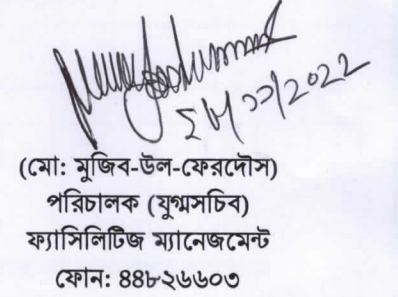 (মো: মুজিব-উল-ফেরদৌস)
পরিচালক (যুগ্মসচিব)
ফ্যাসিলিটিজ ম্যানেজমেন্ট
ফোন: ৪৪৮২৬৬০৩